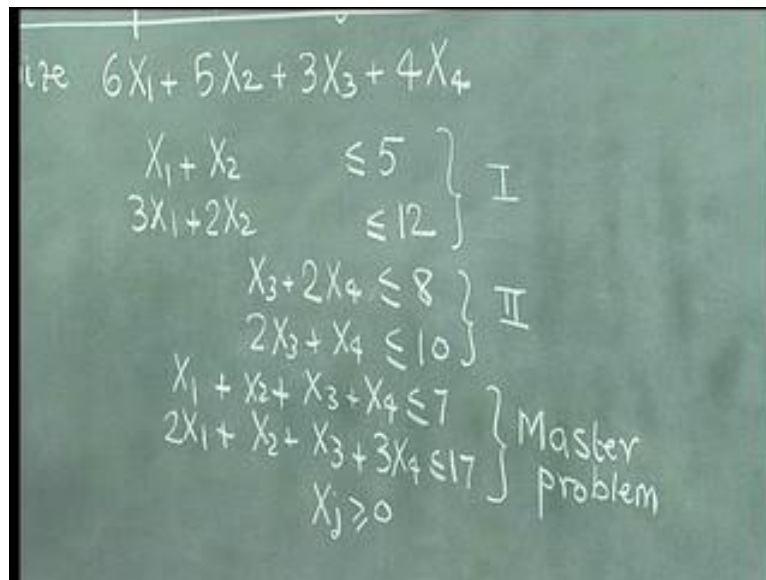 ize 6X₁ + 5X₂ + 3X₃ + 4X₄
X₁ + X₂ ≤ 5
3X₁ + 2X₂ ≤ 12
I
X₃ + 2X₄ ≤ 8
2X₃ + X₄ ≤ 10
II
X₁ + X₂ + X₃ + X₄ ≤ 7
2X₁ + X₂ + X₃ + 3X₄ ≤ 17
Xⱼ ≥ 0
Master
problem